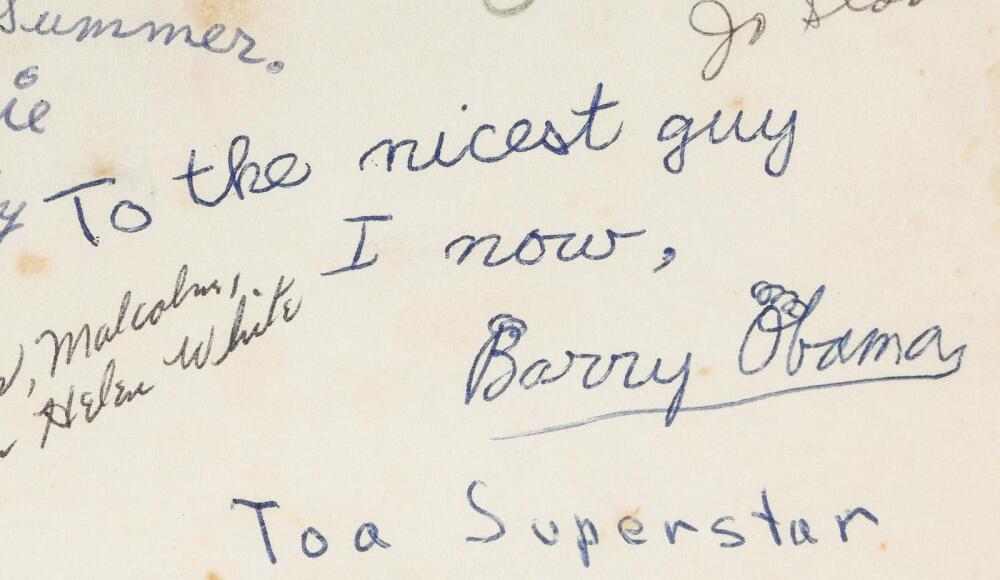 Summer.
ie
To the nicest guy
I now,
Malcolm,
Helen White
Barry Obama
To a Superstar